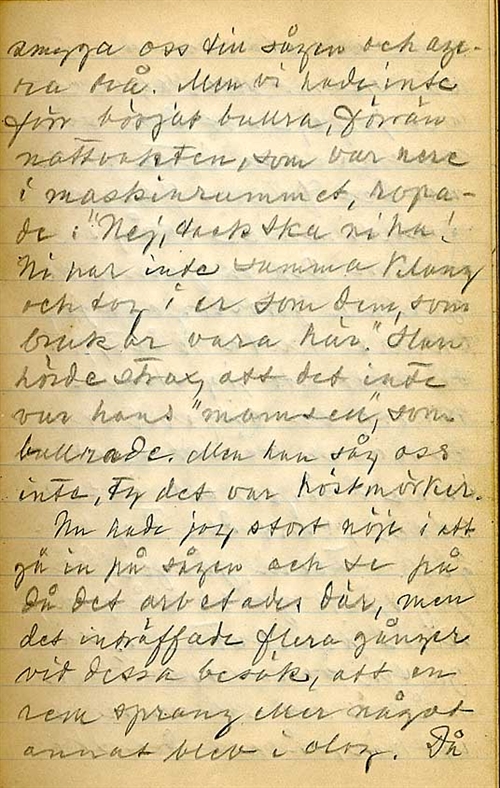 smyga oss till sågen och age-
ra två. Men vi hade inte
förr börjat bullra, förrän
nattvakten, som var nere
i maskinrummet, ropa-
de: "Nej, tack ska ni ha!
Ni har inte samma klang
och tag i er som dem, som
brukar vara här." Han
hörde strax, att det inte
var hans "mamsell", som
bullrade. Men han såg oss
inte, ty det var höstmörker.
Nu hade jag stort nöje i att
gå in på sågen och se på
då det arbetades där, men
det inträffade flera gånger
vid dessa besök, att en
rem sprang eller något
annat blev i olag. Då